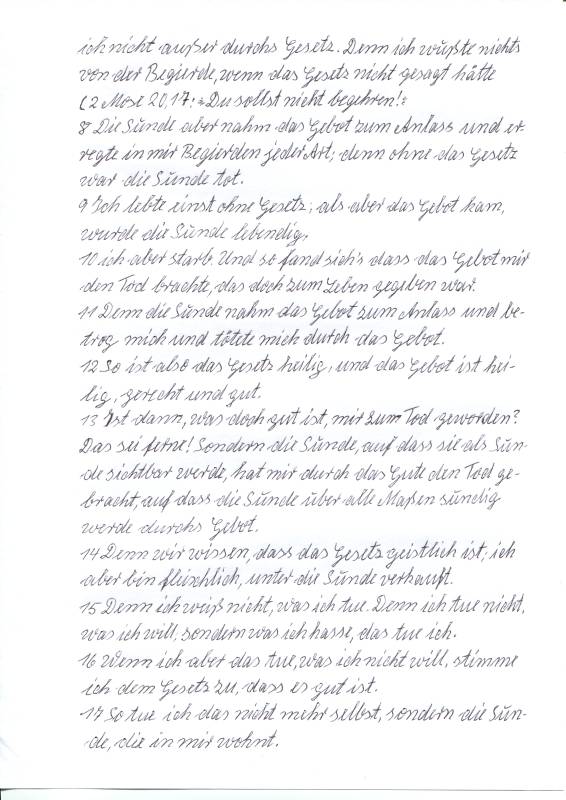 ich nicht außer durchs Gesetz. Denn ich wußte nichts
von der Begierde, wenn das Gesetz nicht gesagt hätte
(2 Mose 20,17: »Du sollst nicht begehren!«
8 Die Sünde aber nahm das Gebot zum Anlass und er-
regte in mir Begierden jeder Art; denn ohne das Gesetz
war die Sünde tot.
9 Ich lebte einst ohne Gesetz; als aber das Gebot kam,
wurde die Sünde lebendig,
10 ich aber starb. Und so fand sich's dass das Gebot mir
den Tod brachte, das doch zum Leben gegeben war.
11 Denn die Sünde nahm das Gebot zum Anlass und be-
trog mich und tötete mich durch das Gebot.
12 So ist also das Gesetz heilig, und das Gebot ist hei-
lig, gerecht und gut.
13 Ist dann, was doch gut ist, mir zum Tod geworden?
Das sei ferne! Sondern die Sünde, auf dass sie als Sün-
de sichtbar werde, hat mir durch das Gute den Tod ge-
bracht, auf dass die Sünde über alle Maßen sündig
werde durchs Gebot.
14 Denn wir wissen, dass das Gesetz geistlich ist; ich
aber bin fleischlich, unter die Sünde verkauft.
15 Denn ich weiß nicht, was ich tue. Denn ich tue nicht,
was ich will, sondern was ich hasse, das tue ich.
16 Wenn ich aber das tue, was ich nicht will, stimme
ich dem Gesetz zu, dass es gut ist.
17 So tue ich das nicht mehr selbst, sondern die Sün-
de, die in mir wohnt.